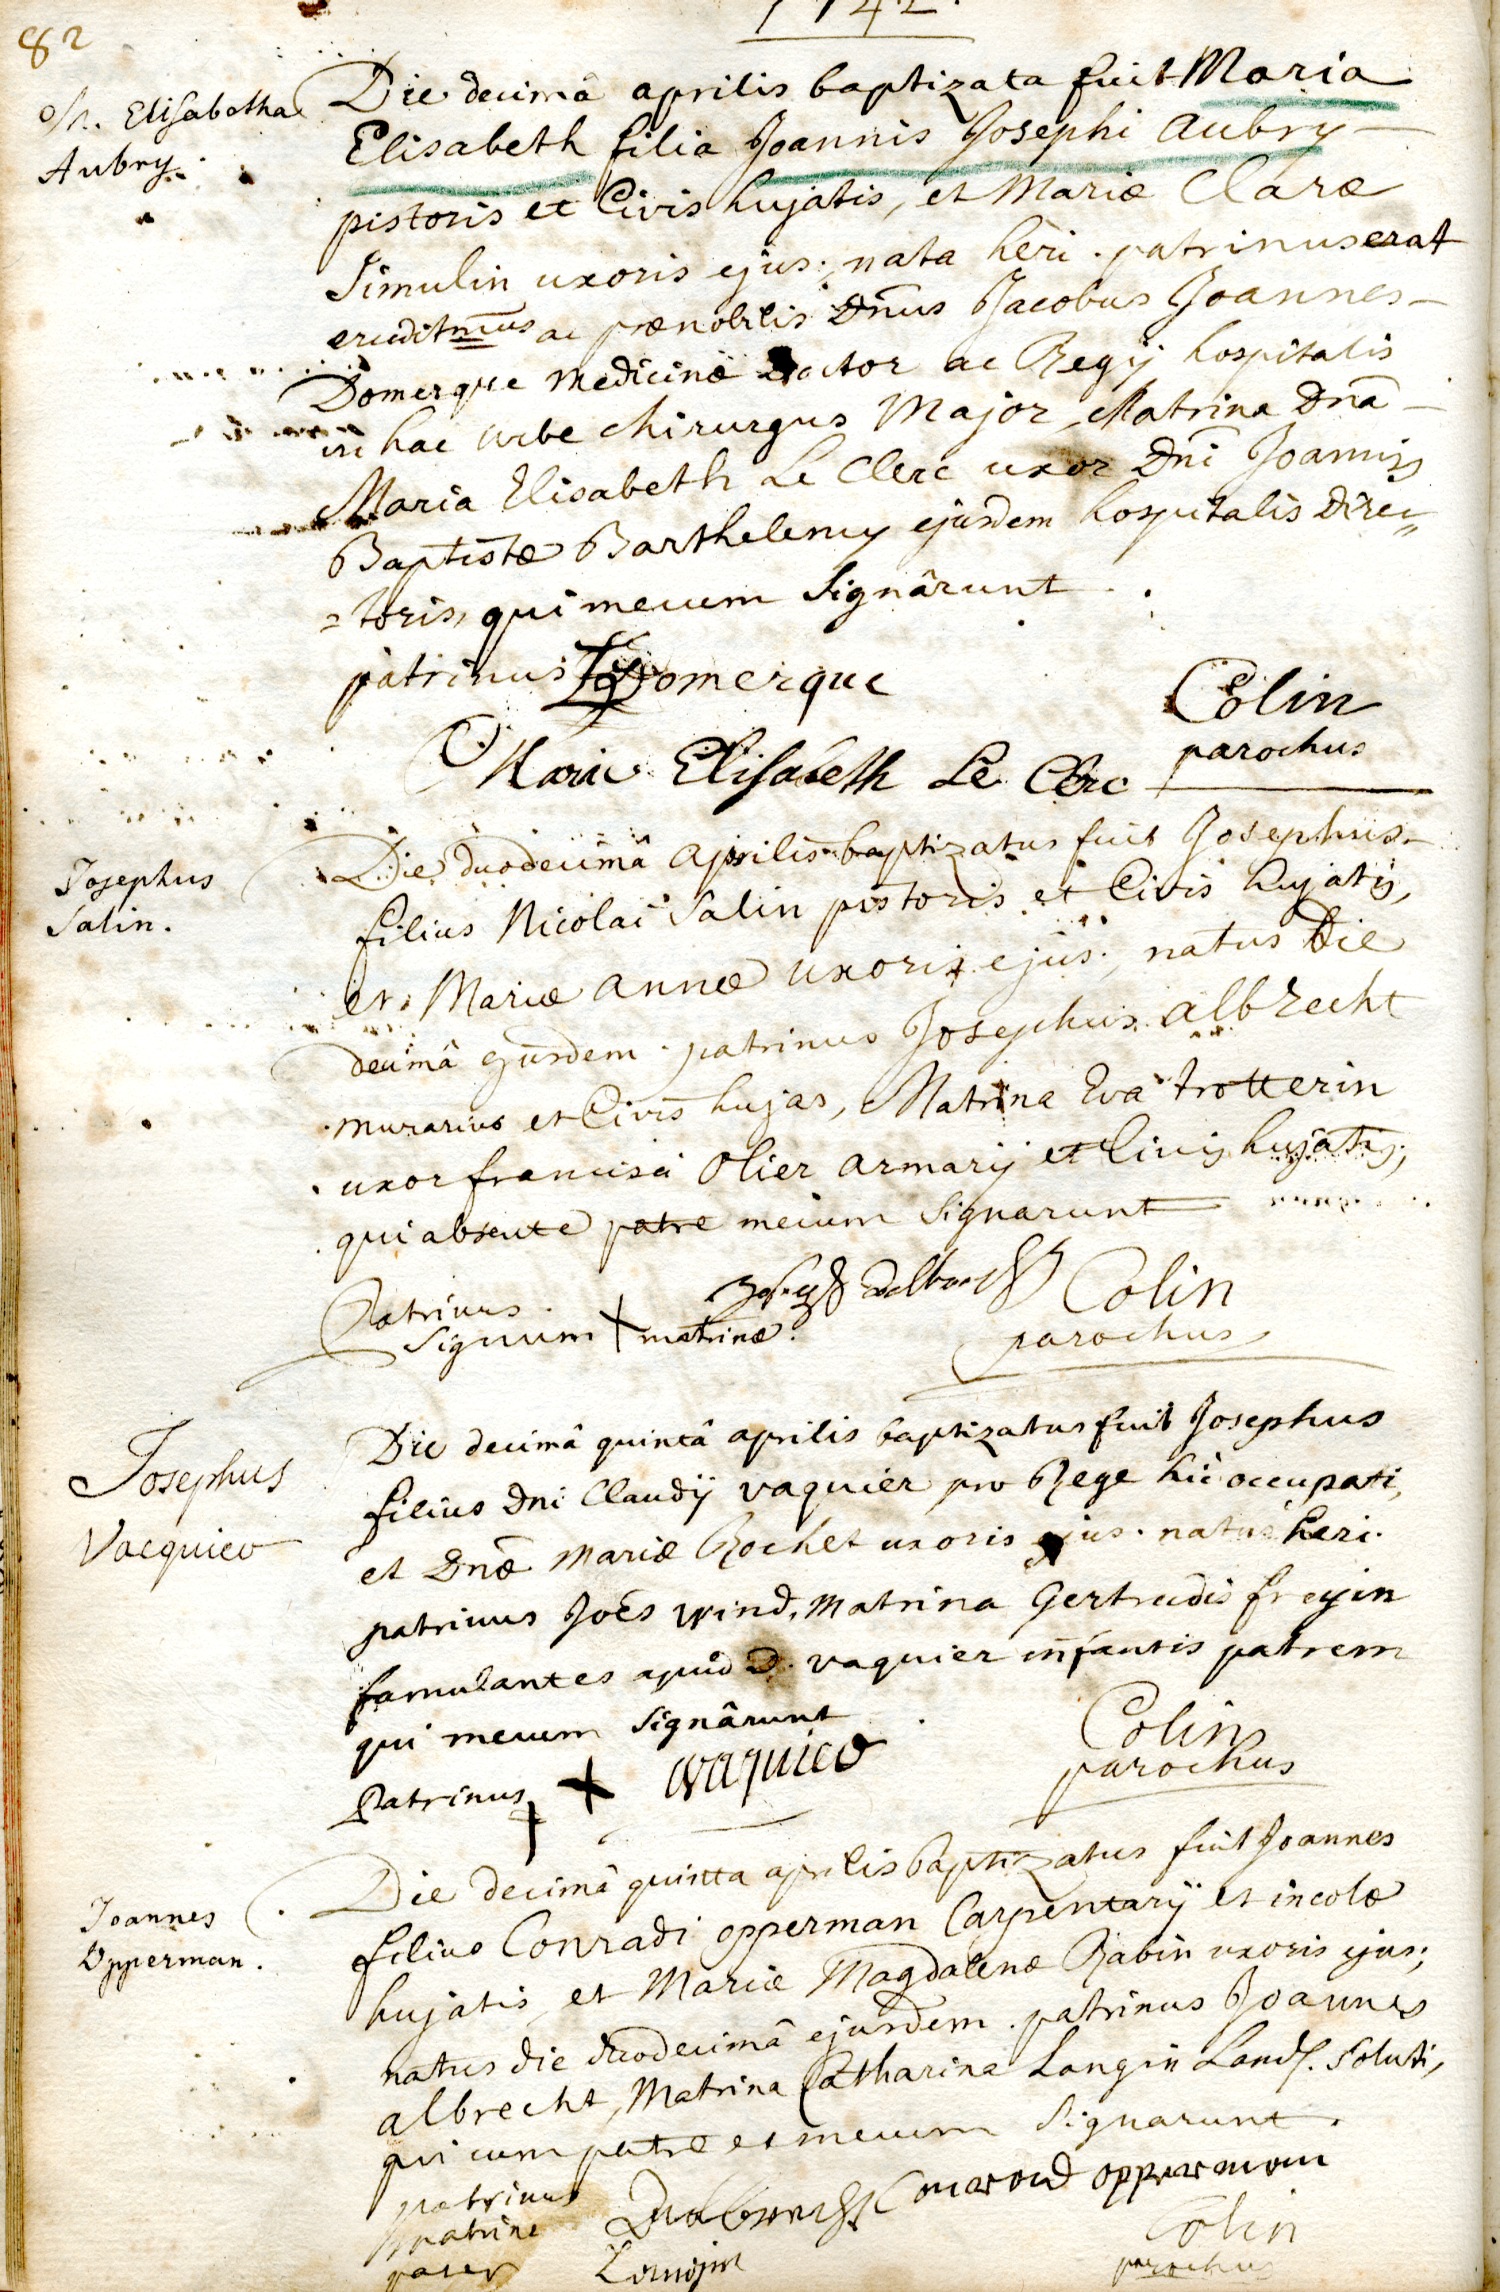 82
1742.
M. Elisabetha
Aubry.
Die decimâ aprilis baptizata fuit Maria
Elisabeth filia Joannis Josephi Aubry
pistoris et Civis hujatis, et Mariæ Claræ
Simulin uxoris ejus; nata heri. patrinus erat
eruditmus ac prænobilis Dnus Jacobus Joannes
Domerque Medicinæ Doctor ac Regij hospitalis
in hac urbe chirurgus Major, Matrina Dna
Maria Elisabeth Le Clerc uxor Dni Joannis
Baptistæ Barthelemy ejusdem hospitalis Direc=
=toris, qui mecum signârunt.
patrinus Domerque
Colin
parochus
Marie Elisabeth Le Clerc
Josephus
Salin.
Die duodecimâ Aprilis baptizatus fuit Josephus
filius Nicolai Salin pistoris et Civis hujatis,
et Mariæ annæ uxoris ejus; natus Die
decimâ ejusdem. patrinus Josephus albrecht
murarius et Civis hujas, Matrina Eva trotterin
uxor francisci Olier armarij et Civis hujatis;
qui absente patre mecum signarunt
Patrinus.
Signum + matrinæ.
Colin
parochus
Josephus
Vacquier
Die decimâ quintâ aprilis baptizatus fuit Josephus
filius Dni Claudij vaquier pro Rege hic occupati,
et Dnæ Mariæ Rochet uxoris ejus. natus heri.
patrinus Joes wind, Matrina Gertrudis freyin
famulantes apud D. vaquier infantis patrem
qui mecum signârunt
Patrinus + vaquier
Colin
parochus
Joannes
Opperman.
Die decimâ quinta aprilis baptizatus fuit Joannes
filius Conradi opperman Carpentarij et incolæ
hujatis, et Mariæ Magdalenæ Rabin uxoris ejus;
natus die duodecimâ ejusdem. patrinus Joannes
albrecht, Matrina Catharina Langin soluti,
qui cum patre et mecum signarunt.
patrinus
matrina
pater
Conrad opperman
Colin
parochus